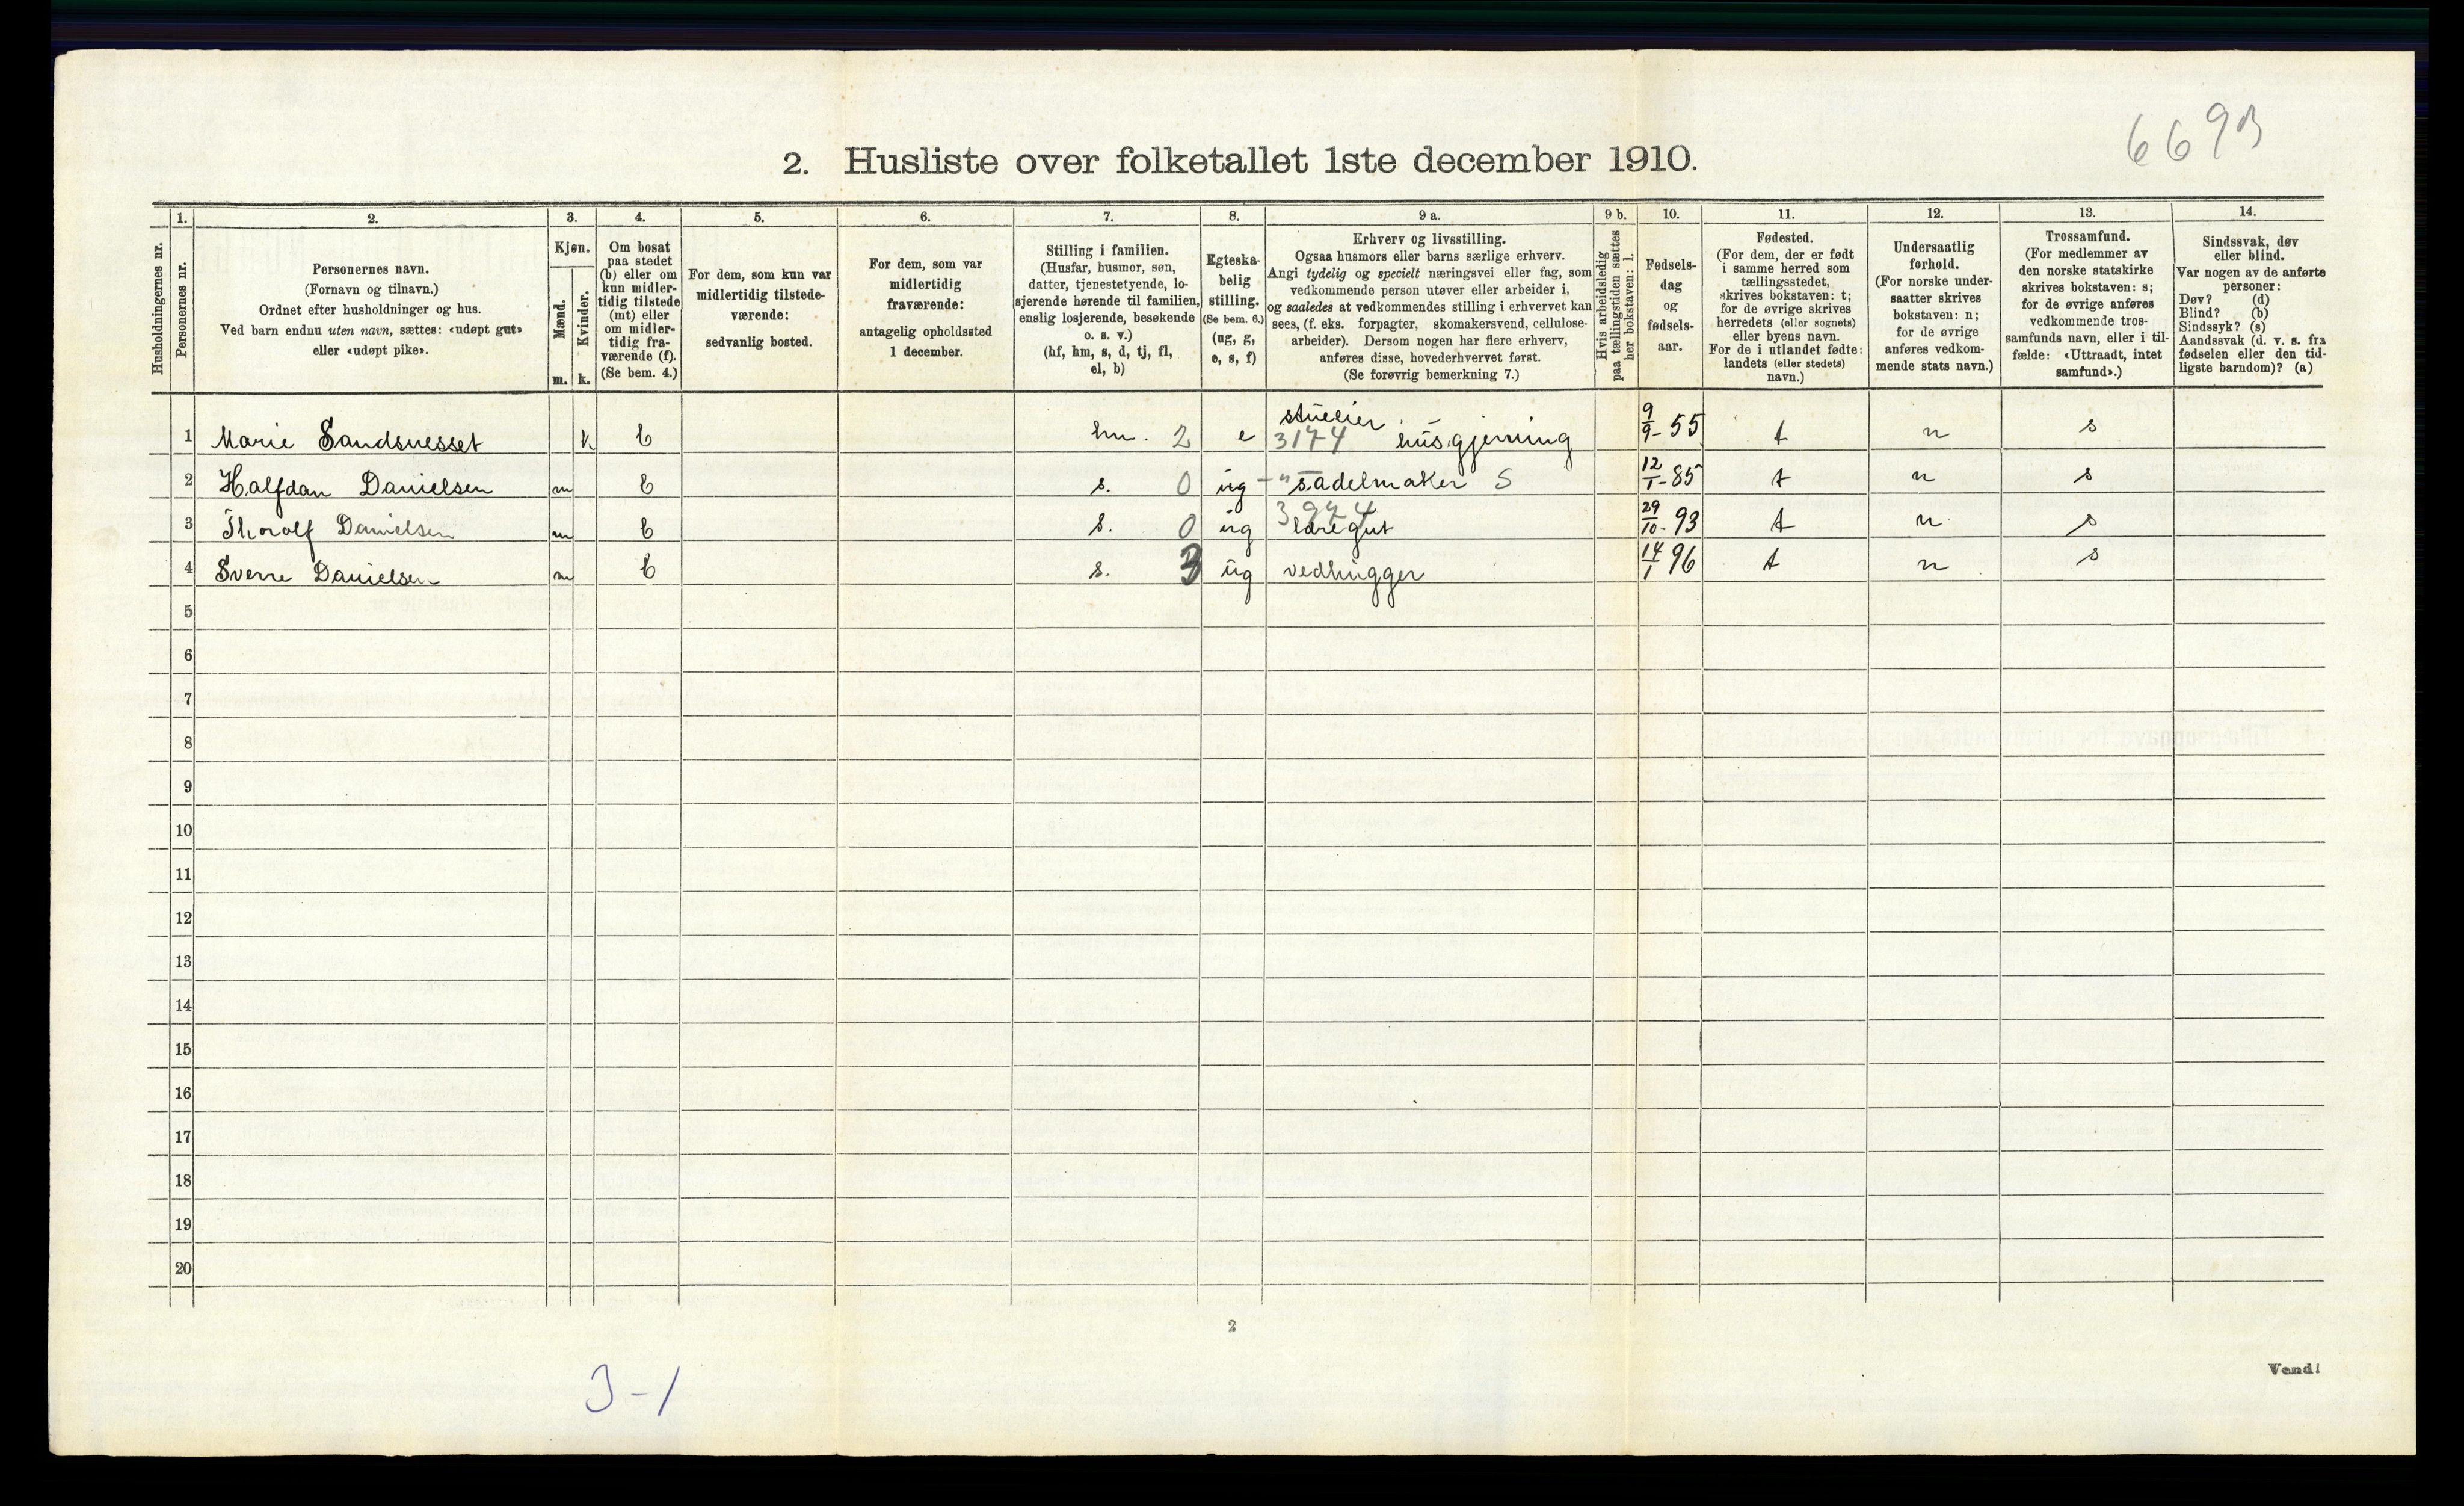 6693
2. Husliste over folketallet 1ste december 1910.
Husholdningernes nr.
1.
Personernes nr.
2.
Personernes navn.
(Fornavn og tilnavn.)
Ordnet efter husholdninger og hus.
Ved barn endnu uten navn, sættes: «udøpt gut»
eller «udøpt pike».
3.
Kjøn.
Mænd.
m.
Kvinder.
k.
4.
Om bosat
paa stedet
(b) eller om
kun midler-
tidig tilstede
(mt) eller
om midler-
tidig fra-
værende (f).
(Se bem. 4.)
5.
For dem, som kun var
midlertidig tilstede-
værende:
sedvanlig bosted.
6.
For dem, som var
midlertidig
fraværende:
antagelig opholdssted
1 december.
7.
Stilling i familien.
(Husfar, husmor, søn,
datter, tjenestetyende, lo-
sjerende hørende til familien,
enslig losjerende, besøkende
o. s. v.)
(hf, hm, s, d, tj, fl,
el, b)
8.
Egteska-
belig
stilling.
(Se bem. 6.)
(ug, g,
e, s, f)
9 a.
Erhverv og livsstilling.
Ogsaa husmors eller barns særlige erhverv.
Angi tydelig og specielt næringsvei eller fag, som
vedkommende person utøver eller arbeider i,
og saaledes at vedkommendes stilling i erhvervet kan
sees, (f. eks. forpagter, skomakersvend, cellulose-
arbeider). Dersom nogen har flere erhverv,
anføres disse, hovederhvervet først.
(Se forøvrig bemerkning 7.)
9 b.
Hvis arbeidsledig
paa tællingstiden sættes
her bokstaven: l.
10.
Fødsels-
dag
og
fødsels-
aar.
11.
Fødested.
(For dem, der er født
i samme herred som
tællingsstedet,
skrives bokstaven: t;
for de øvrige skrives
herredets (eller sognets)
eller byens navn.
For de i utlandet fødte:
landets (eller stedets)
navn.)
12.
Undersaatlig
forhold.
(For norske under-
saatter skrives
bokstaven: n;
for de øvrige
anføres vedkom-
mende stats navn.)
13.
Trossamfund.
(For medlemmer av
den norske statskirke
skrives bokstaven: s;
for de øvrige anføres
vedkommende tros-
samfunds navn, eller i til-
fælde: «Uttraadt, intet
samfund».)
14.
Sindssvak, døv
eller blind.
Var nogen av de anførte
personer:
Døv? (d)
Blind? (b)
Sindssyk? (s)
Aandssvak (d. v. s. fra
fødselen eller den tid-
ligste barndom)? (a)
1 Marie Sandsnesset k b hm. 2 e 3174 husgjerning 9/9-55 t n s
2 Halfdan Danielsen m b s. 0 ug -"- sadelmaker S 12/1-85 t n s
3974
3 Thorolf Danielsen m b s. 0 ug læregut 29/10-93 t n s
4 Sverre Danielsen m b s. 3 ug vedhugger 14/1 96 t n s
5
6
7
8
9
10
11
12
13
14
15
16
17
18
19
20
2
Vend!
3-1